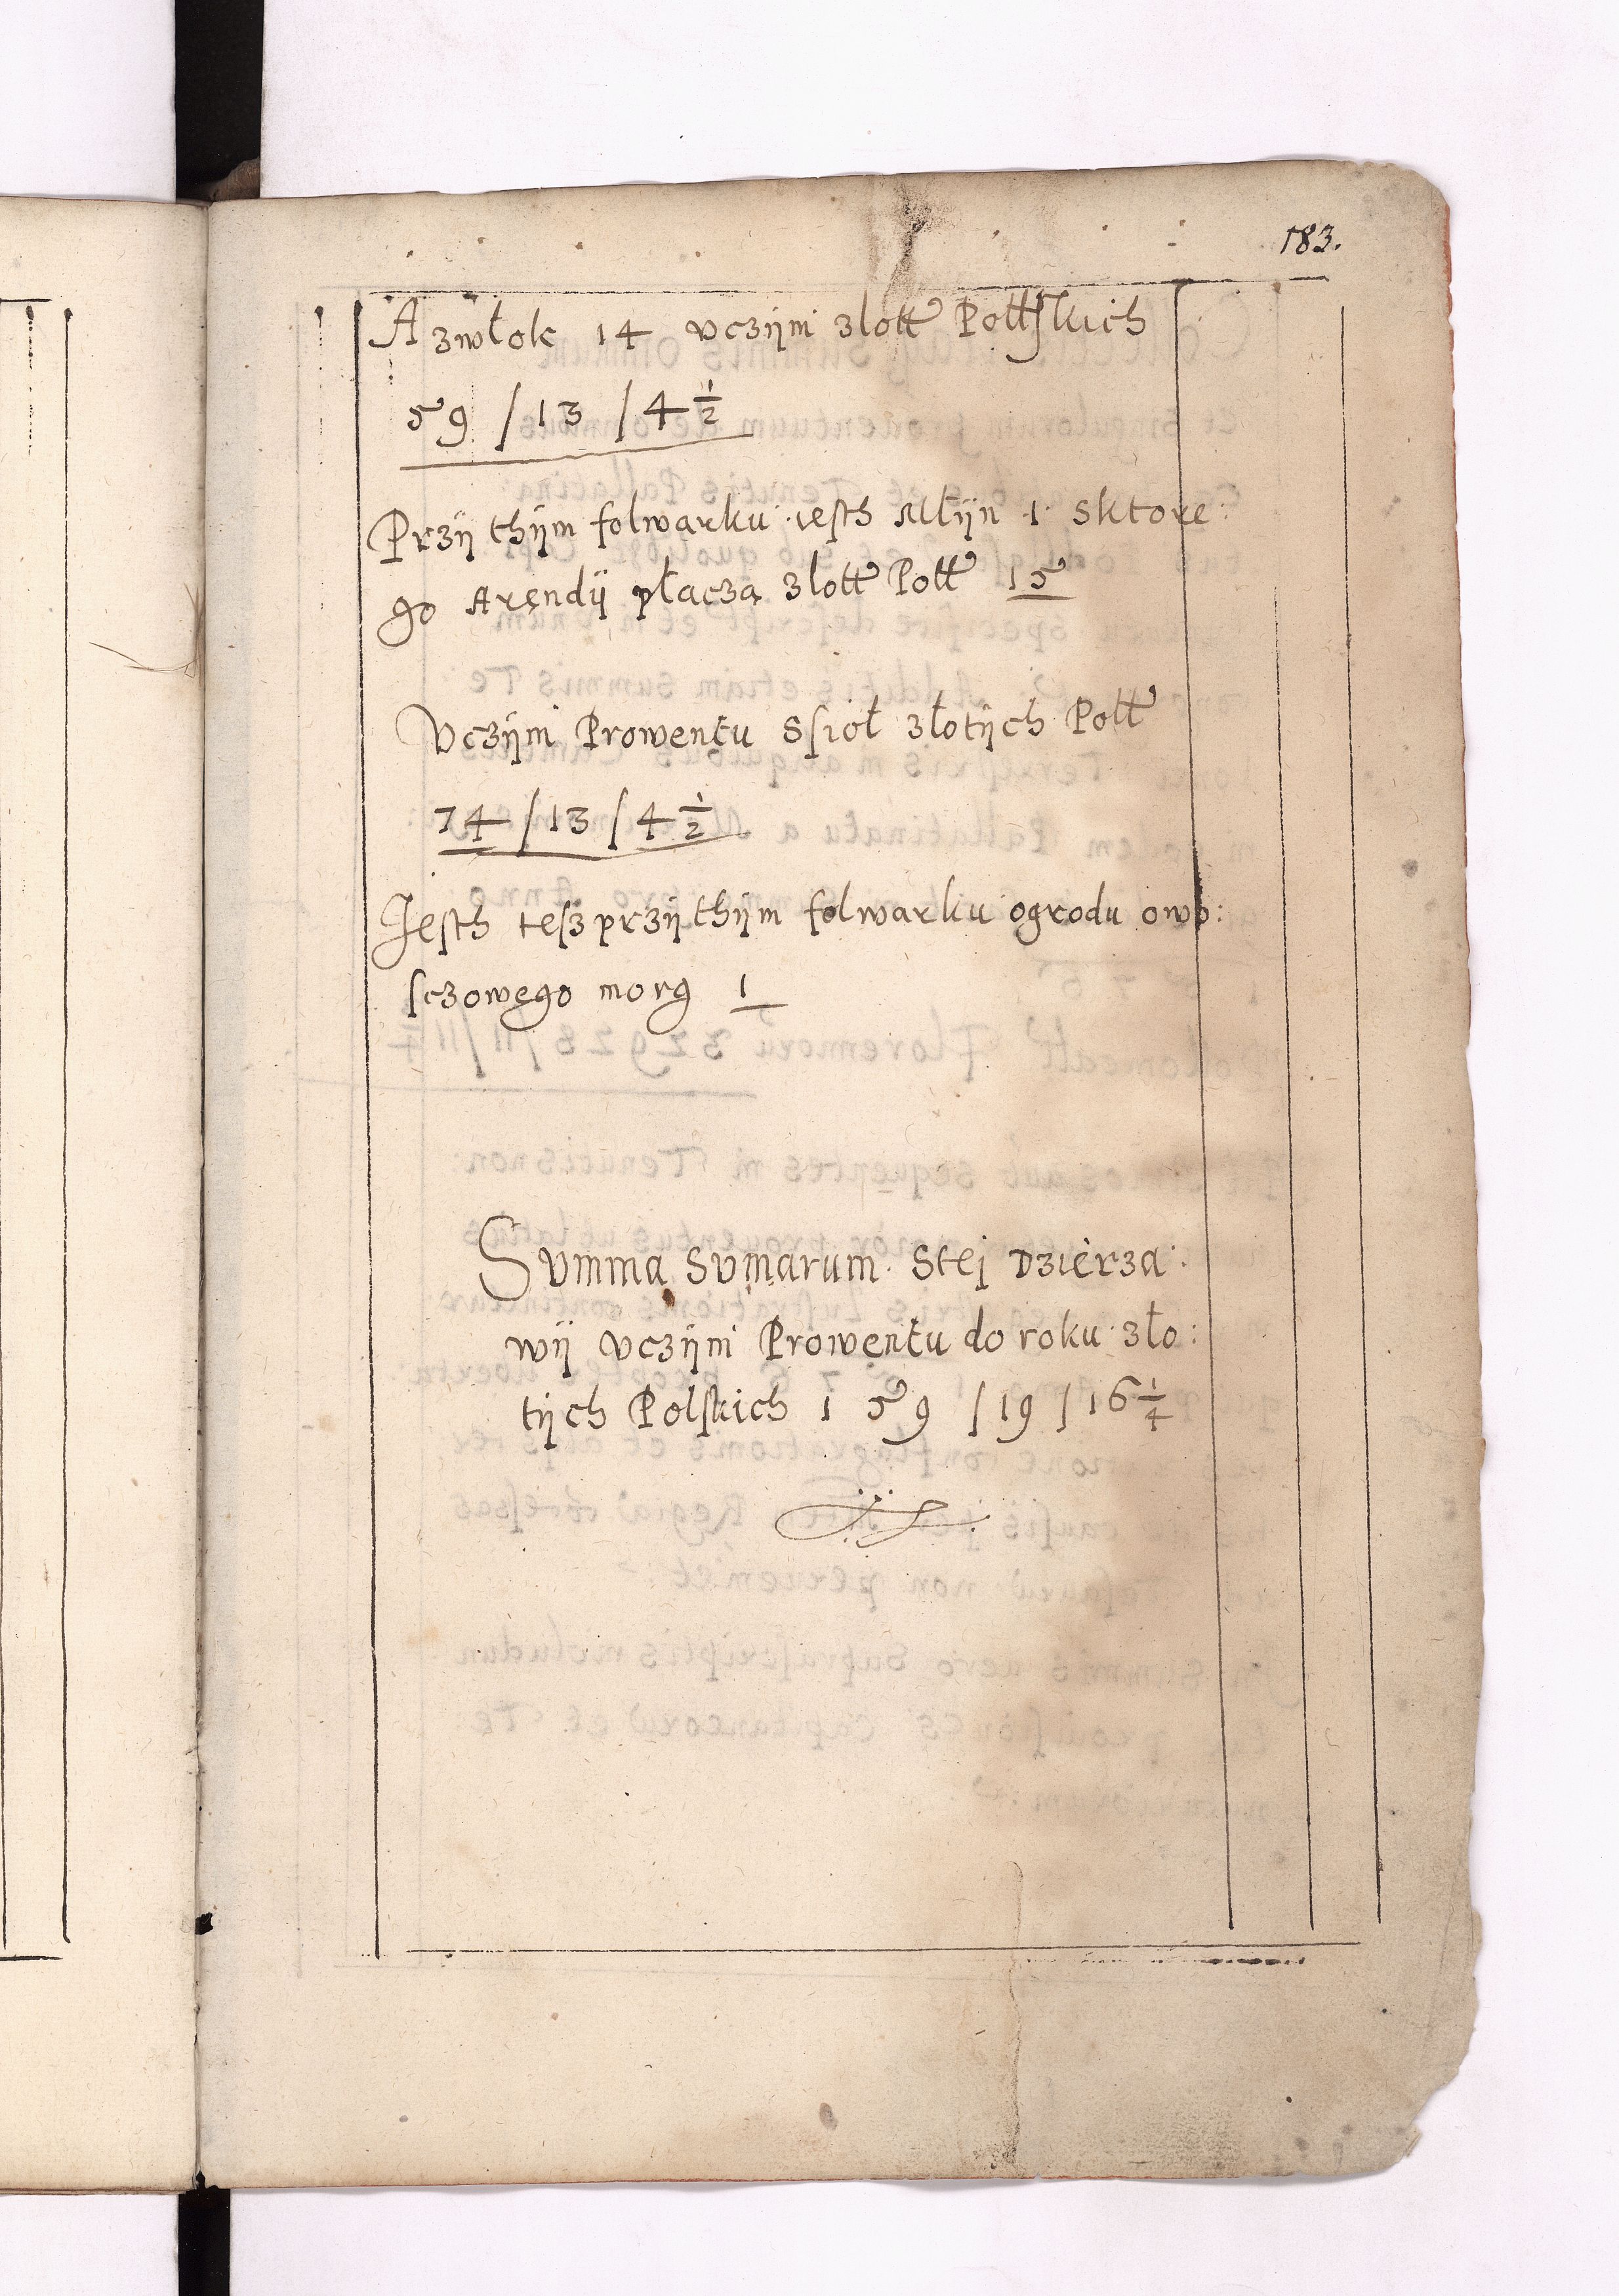 183.
A zwłok 14 vczÿni złott Pollſkich
59 / 13 / 4 1/2
Przÿ thÿm folwarku ieſth Młÿn 1 sktore:
go Arendÿ płacza złott Poll 15
Vczÿni Prowentu Sſioł złotÿch Poll
74 / 13 / 4 1/2
Jeſth teſz przÿ thÿm folwarku ogrodu owo:
ſczowego morg 1
Svmma Svmarum Stej Dzierza:
wÿ vczÿni Prowentu do roku zło:
tÿch Polſkich 1 59 / 19 / 16 1/4